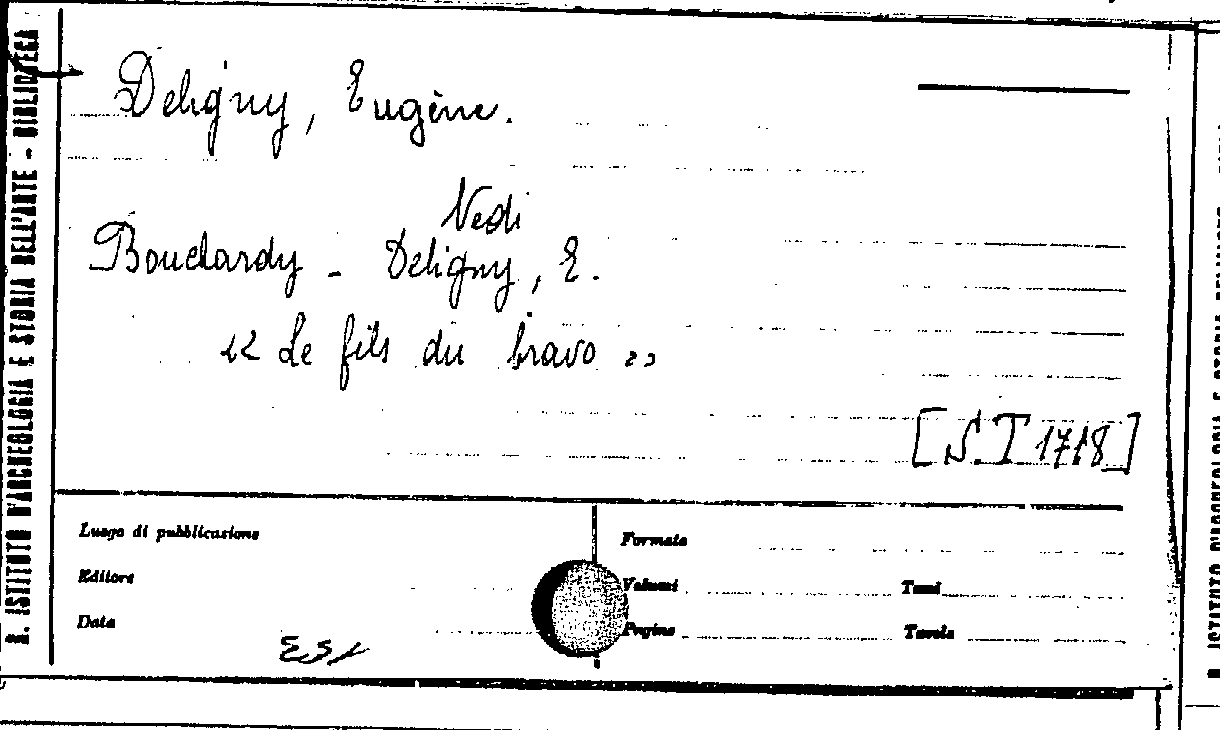 R. ISTITUTO D'ARCHEOLOGIA E STORIA DELL'ARTE - BIBLIOTECA
Deligny, Eugène.
Vedi
Bouchardy - Deligny, E.
« Le fils du bravo »
[S.T 1718]
Luogo di pubblicazione
Editore
Data
Formato
Volumi
Tomi
Pagine
Tavole